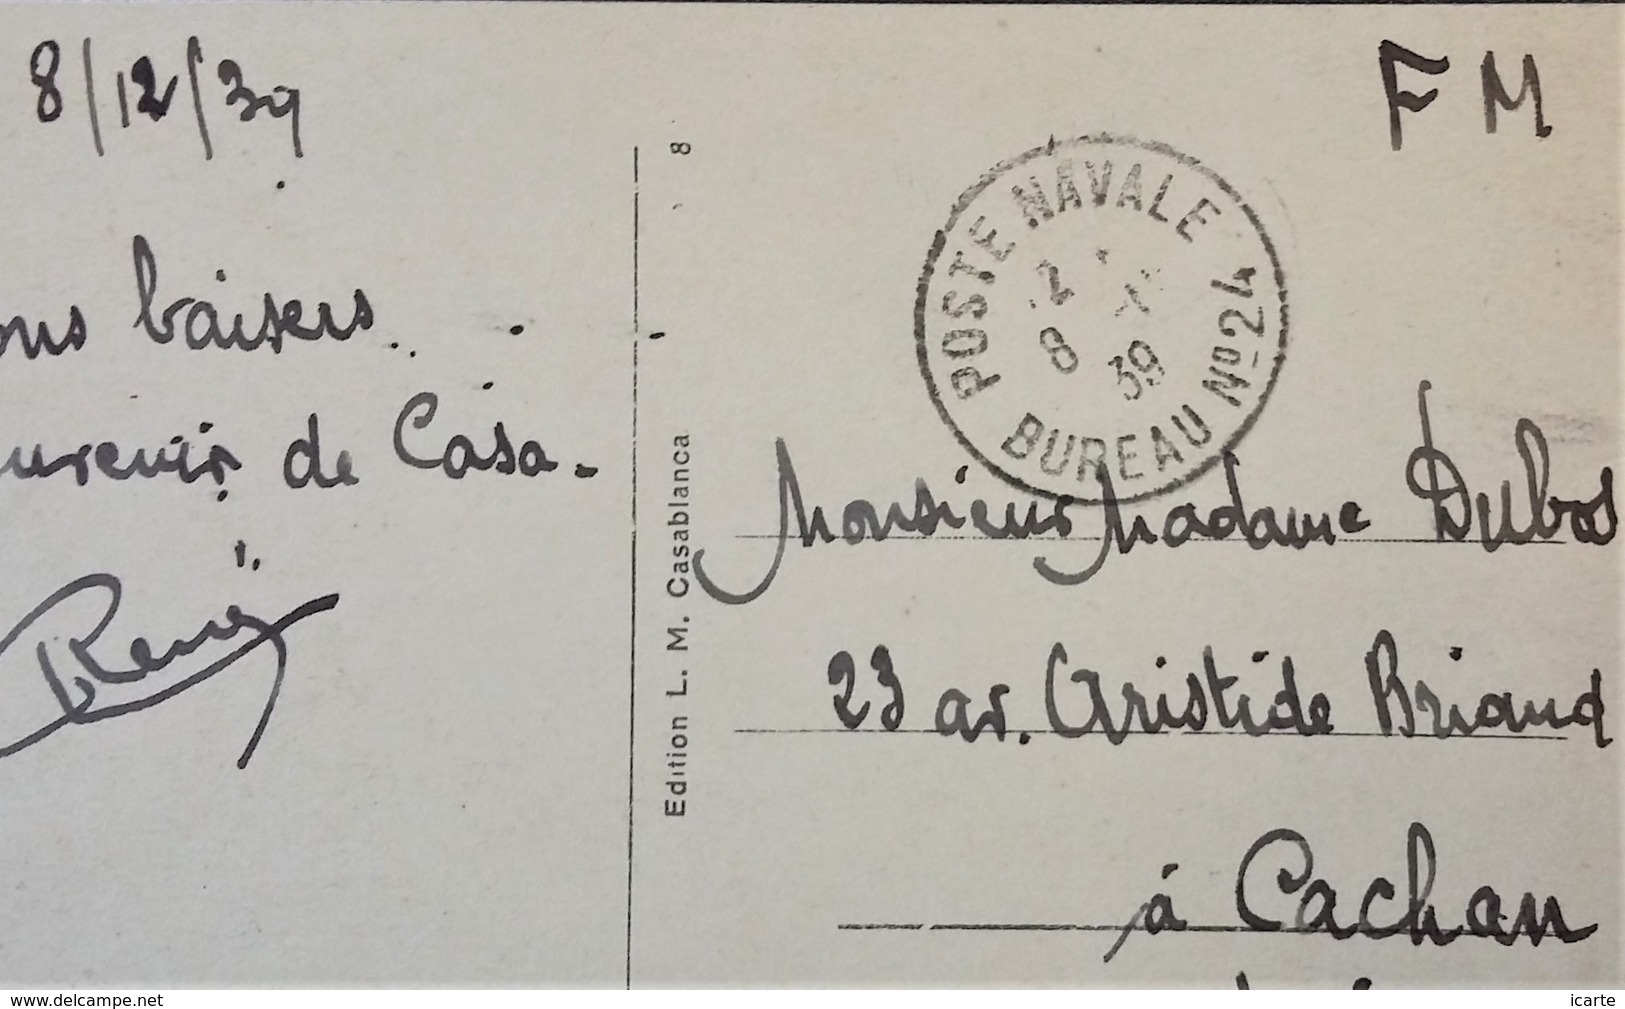 8/12/39
baisers..
de Casa.
René
8
Edition L. M. Casablanca
F M
POSTE NAVALE
8 39
BUREAU Nº 24
Monsieur Madame Dubos
23 av. Aristide Briand
à Cachan
www.delcampe.net
icarte